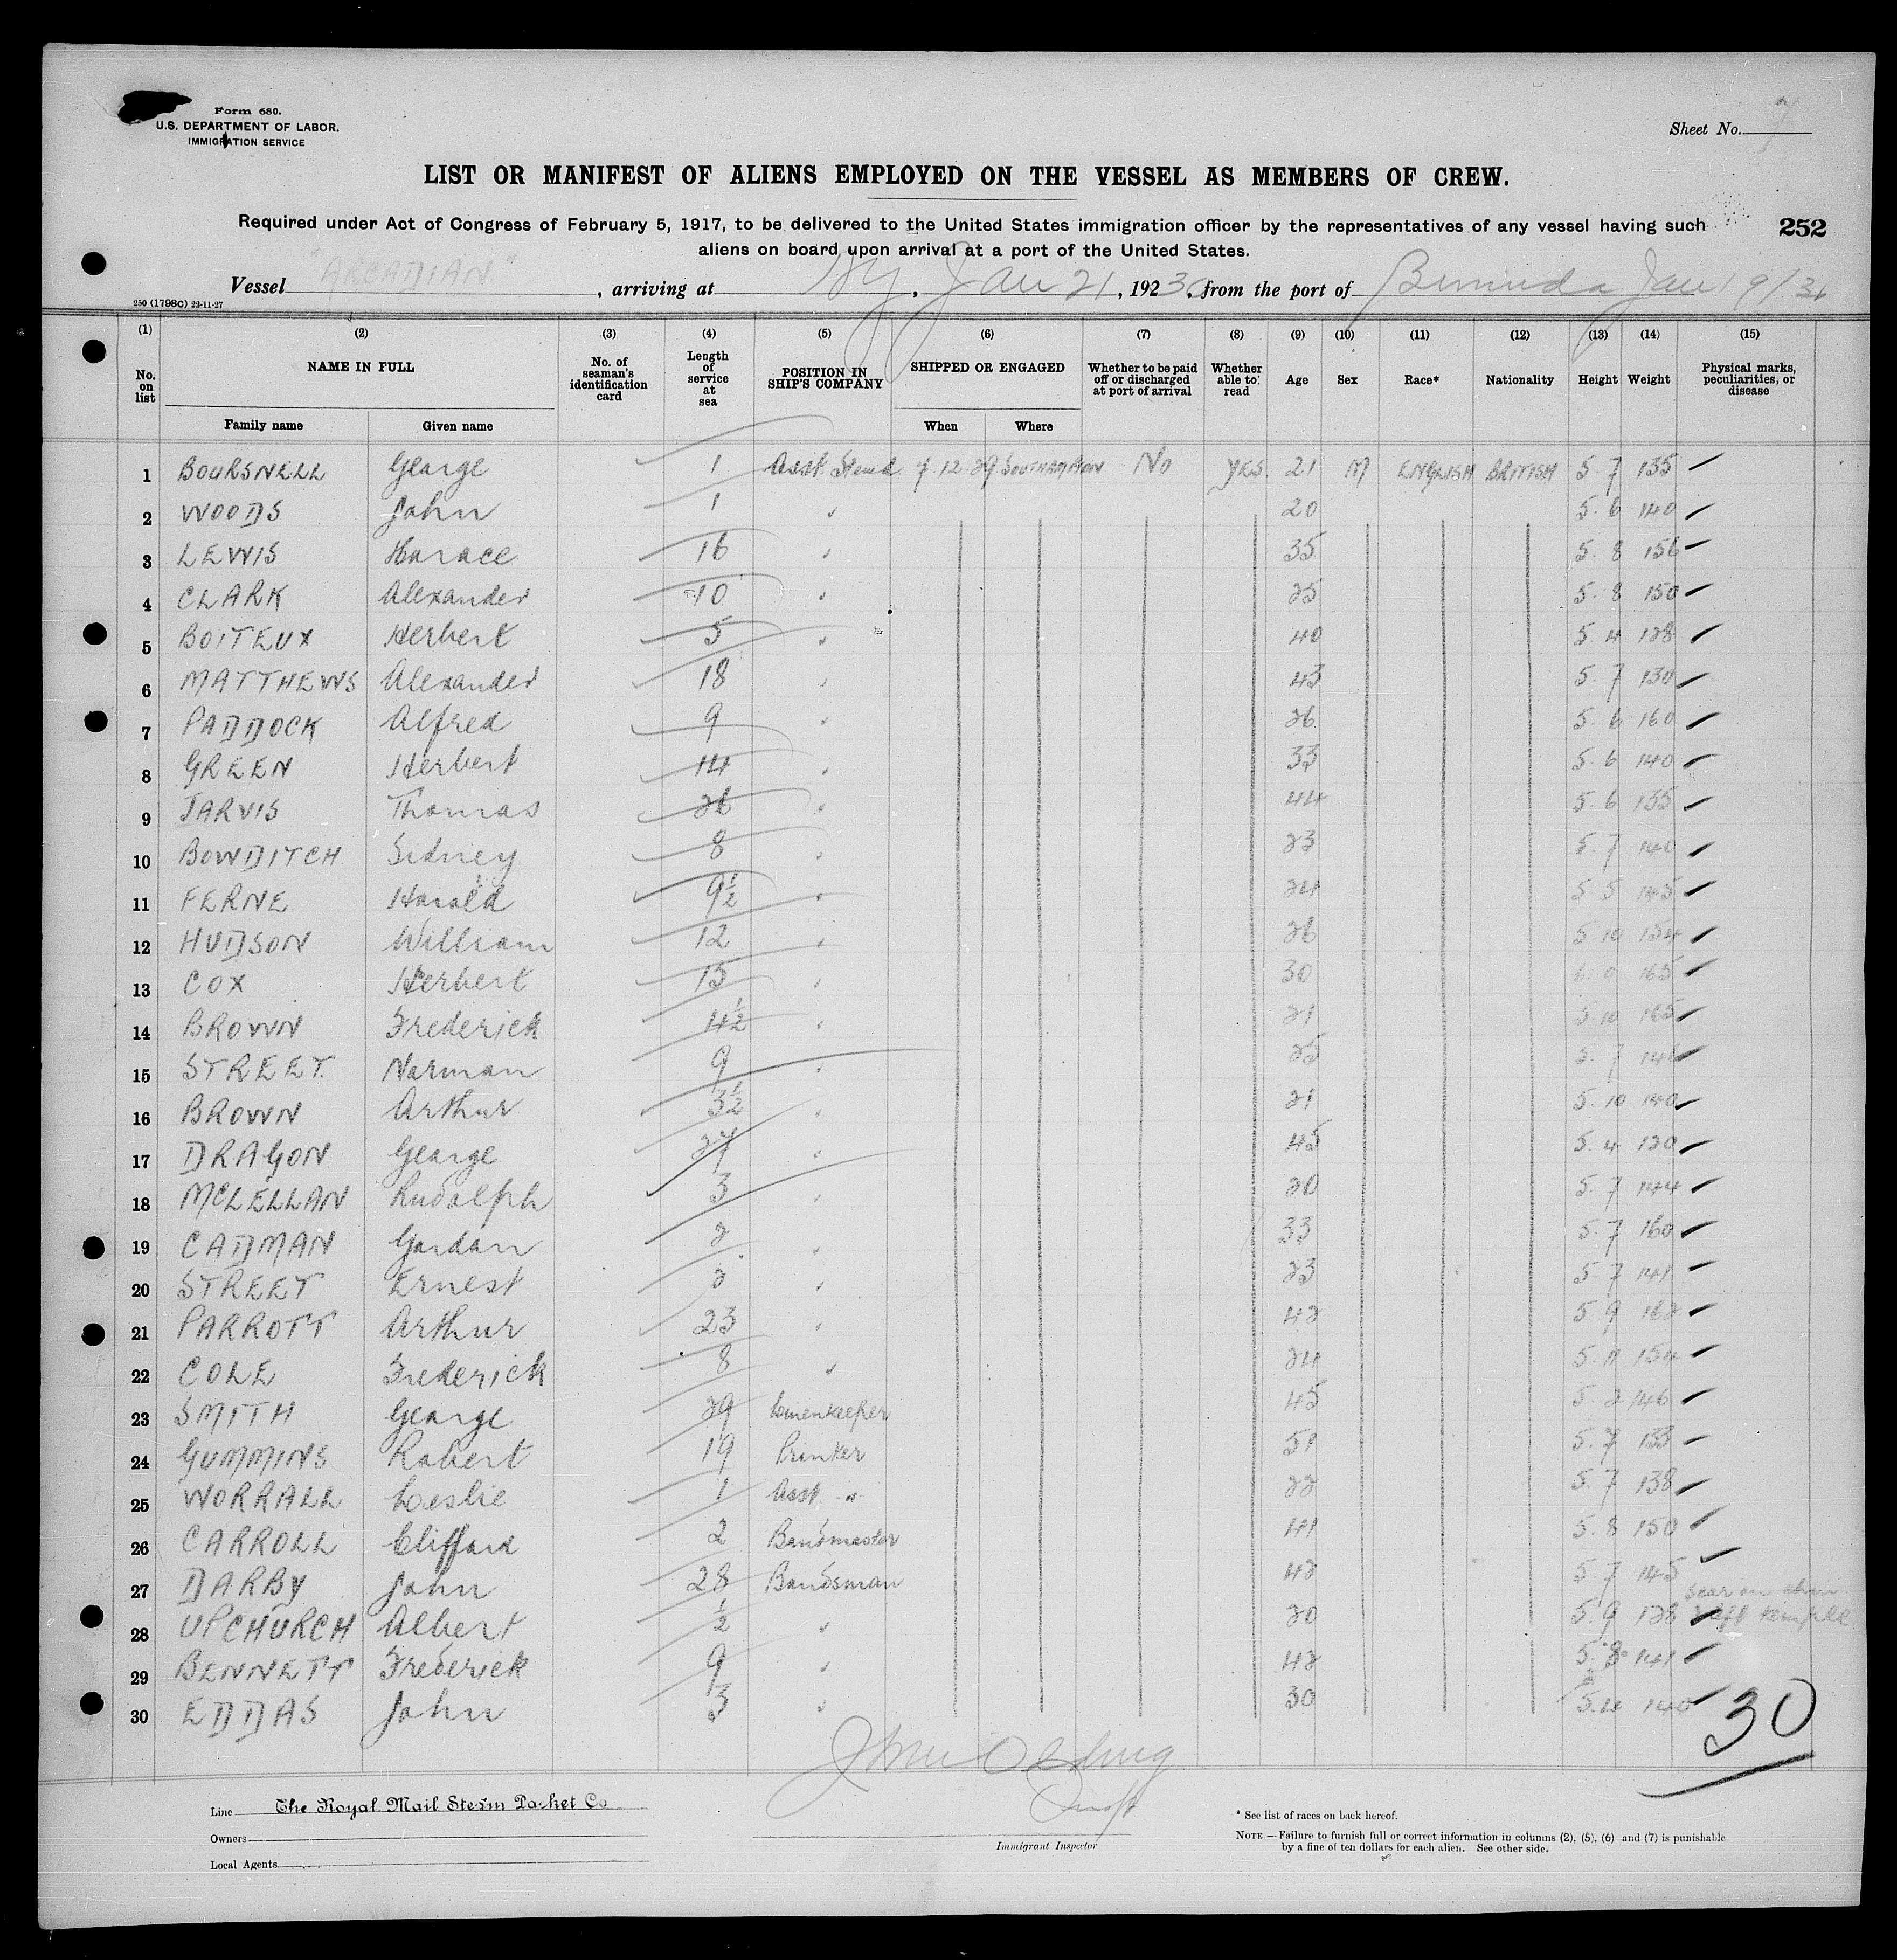 Form 680.
U.S. DEPARTMENT OF LABOR.
IMMIGRATION SERVICE
Sheet No. 7
LIST OR MANIFEST OF ALIENS EMPLOYED ON THE VESSEL AS MEMBERS OF CREW.
Required under Act of Congress of February 5, 1917, to be delivered to the United States immigration officer by the representatives of any vessel having such
252
aliens on board upon arrival at a port of the United States.
Vessel "ARCADIAN", arriving at NY, Jan 21, 1930, from the port of Bermuda Jan 19/30
250 (1798C) 22-11-27
(1) (2) (3) (4) (5) (6) (7) (8) (9) (10) (11) (12) (13) (14) (15)
No. on list NAME IN FULL No. of seaman's identification card Length of service at sea POSITION IN SHIP'S COMPANY SHIPPED OR ENGAGED Whether to be paid off or discharged at port of arrival Whether able to read Age Sex Race* Nationality Height Weight Physical marks, peculiarities, or disease
Family name Given name When Where
1 BOURSNELL George 1 Asst Stewd 7.12.29 SOUTHAMPTON No YES 21 M ENGLISH BRITISH 5 7 135
2 WOODS John 1 " 20 5. 6 140
3 LEWIS Horace 16 " 35 5. 8 156
4 CLARK Alexander 10 " 25 5. 8 150
5 BOITEUX Herbert 5 " 40 5. 4 128
6 MATTHEWS Alexander 18 " 43 5. 7 130
7 PADDOCK Alfred 9 " 26 5. 6 160
8 GREEN Herbert 14 " 33 5. 6 140
9 JARVIS Thomas 26 " 44 5. 6 135
10 BOWDITCH Sidney 8 " 23 5. 7 140
11 FERNE Harold 9½ " 24 5 5 145
12 HUDSON William 12 " 26 5 10 154
13 COX Herbert 15 " 30 6. 0 165
14 BROWN Frederick 4½ " 21 5. 10 165
15 STREET Norman 9 " 25 5. 7 146
16 BROWN Arthur 3½ " 21 5. 10 140
17 DRAGON George 27 " 45 5. 4 120
18 McLELLAN Rudolph 3 " 20 5. 7 144
19 CADMAN Gordon 2 " 33 5. 7 160
20 STREET Ernest 2 " 23 5 7 141
21 PARROTT Arthur 23 " 42 5 9 162
22 COLE Frederick 8 " 24 5. 11 154
23 SMITH George 29 Linenkeeper 45 5. 2 146
24 GUMMINS Robert 19 Printer 51 5. 7 133
25 WORRALL Leslie 1 Asst " 22 5. 7 138
26 CARROLL Clifford 2 Bandmaster 41 5. 8 150
27 DARBY John 28 Bandsman 42 5 7 145
28 UPCHURCH Albert ½ " 20 5. 9 128 Scar on chin & left temple
29 BENNETT Frederick 9 " 42 5. 8 141
30 EDDAS John 3 " 30 5. 4 140
30
Line The Royal Mail Steam Packet Co
Owners
Local Agents
Immigrant Inspector
* See list of races on back hereof.
NOTE.—Failure to furnish full or correct information in columns (2), (5), (6) and (7) is punishable
by a fine of ten dollars for each alien. See other side.